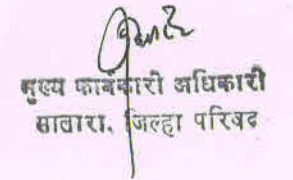 मुख्य कार्यकारी अधिकारी
सातारा, जिल्हा परिषद